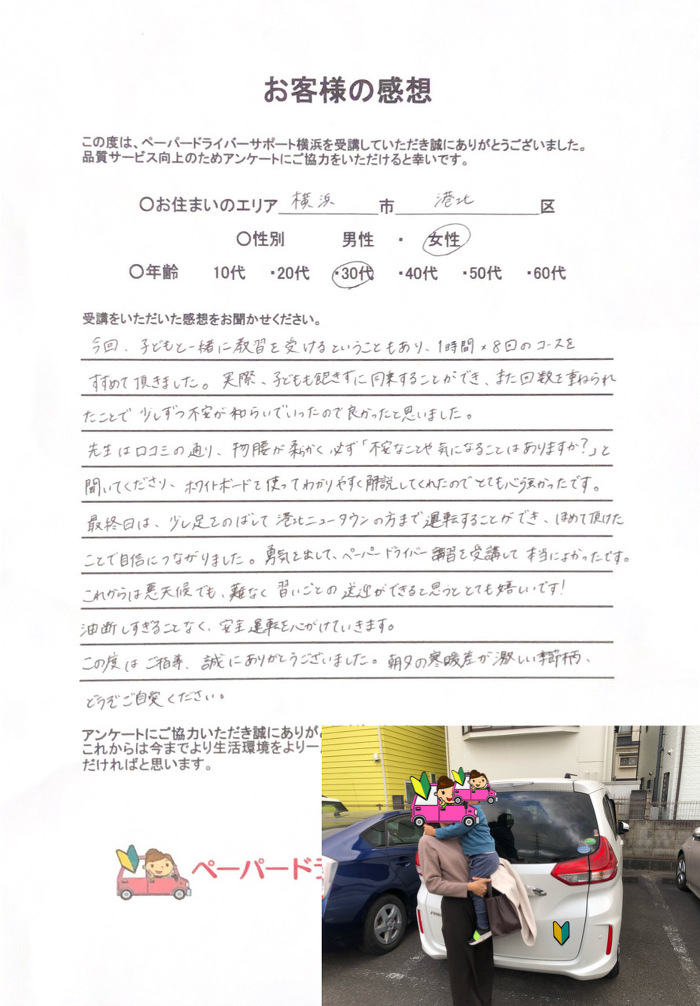 お客様の感想
この度は、ペーパードライバーサポート横浜を受講していただき誠にありがとうございました。
品質サービス向上のためアンケートにご協力をいただけると幸いです。
○お住まいのエリア 横浜 市 港北 区
○性別 男性 ・ 女性
○年齢 10代 ・20代 ・30代 ・40代 ・50代 ・60代
受講をいただいた感想をお聞かせください。
今回、子どもと一緒に教習を受けるということもあり、1時間×8回のコースを
すすめて頂きました。実際、子どもも飽きずに同乗することができ、また回数を重ねられ
たことで少しずつ不安が和らいでいったので良かったと思いました。
先生は口コミの通り、物腰が柔らかく必ず「不安なことや気になることはありますか?」と
聞いてくださり、ホワイトボードを使ってわかりやすく解説してくれたのでとても心強かったです。
最終日は、少し足をのばして港北ニュータウンの方まで運転することができ、ほめて頂けた
ことで自信につながりました。勇気を出して、ペーパードライバー講習を受講して本当によかったです。
これからは悪天候でも、難なく習いごとの送迎ができると思うととても嬉しいです!
油断しすぎることなく、安全運転を心がけていきます。
この度はご指導、誠にありがとうございました。朝夕の寒暖差が激しい季節柄、
どうぞご自愛ください。
アンケートにご協力いただき誠にありが
これからは今までより生活環境をより一
だければと思います。
ペーパードラ